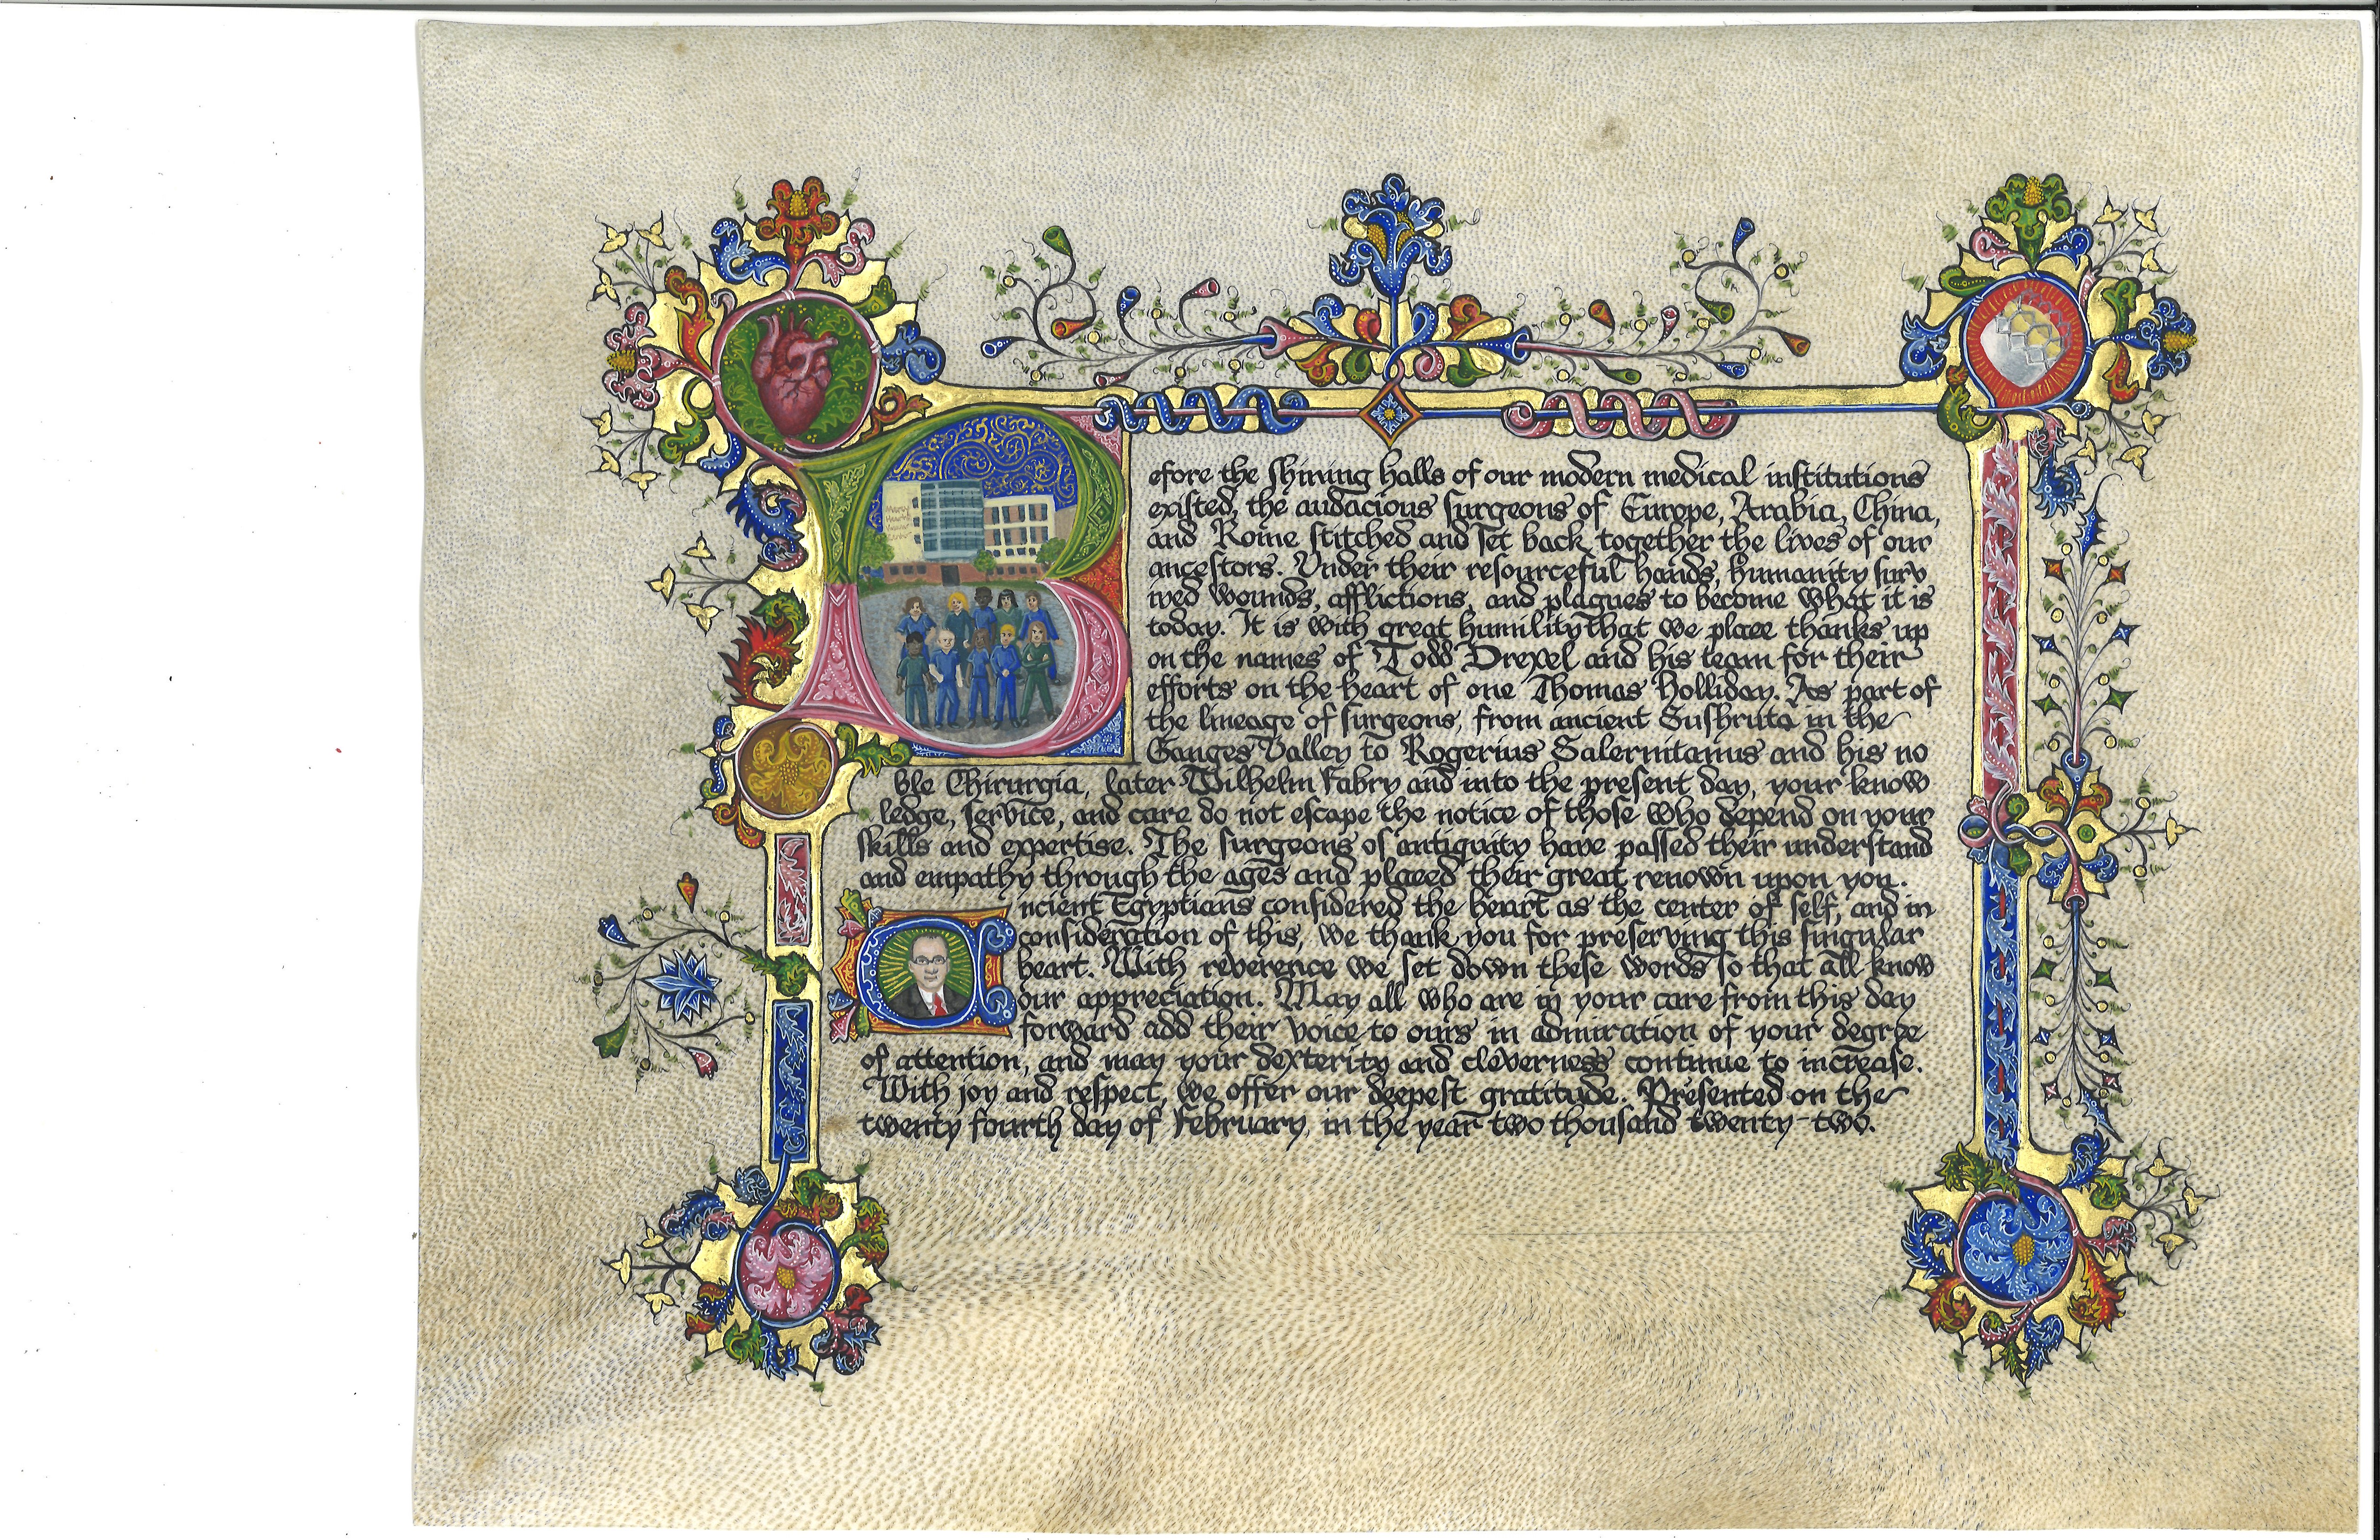 Before the shining halls of our modern medical institutions
existed, the audacious surgeons of Europe, Arabia, China,
and Rome stitched and set back together the lives of our
ancestors. Under their resourceful hands, humanity surv
ived wounds, afflictions, and plagues to become what it is
today. It is with great humility that we place thanks up
on the names of Todd Drexel and his team for their
efforts on the heart of one Thomas Holliday. As part of
the lineage of surgeons, from ancient Sushruta in the
Ganges Valley to Rogerius Salernitanus and his no
ble Chirurgia, later Wilhelm Fabry and into the present day, your know
ledge, service, and care do not escape the notice of those who depend on your
skills and expertise. The surgeons of antiquity have passed their understand
and empathy through the ages and placed their great renown upon you.
Ancient Egyptians considered the heart as the center of self, and in
consideration of this, we thank you for preserving this singular
heart. With reverence we set down these words so that all know
our appreciation. May all who are in your care from this day
forward add their voice to ours in admiration of your degree
of attention, and may your dexterity and cleverness continue to increase.
With joy and respect, we offer our deepest gratitude. Presented on the
twenty fourth day of February, in the year two thousand twenty-two.